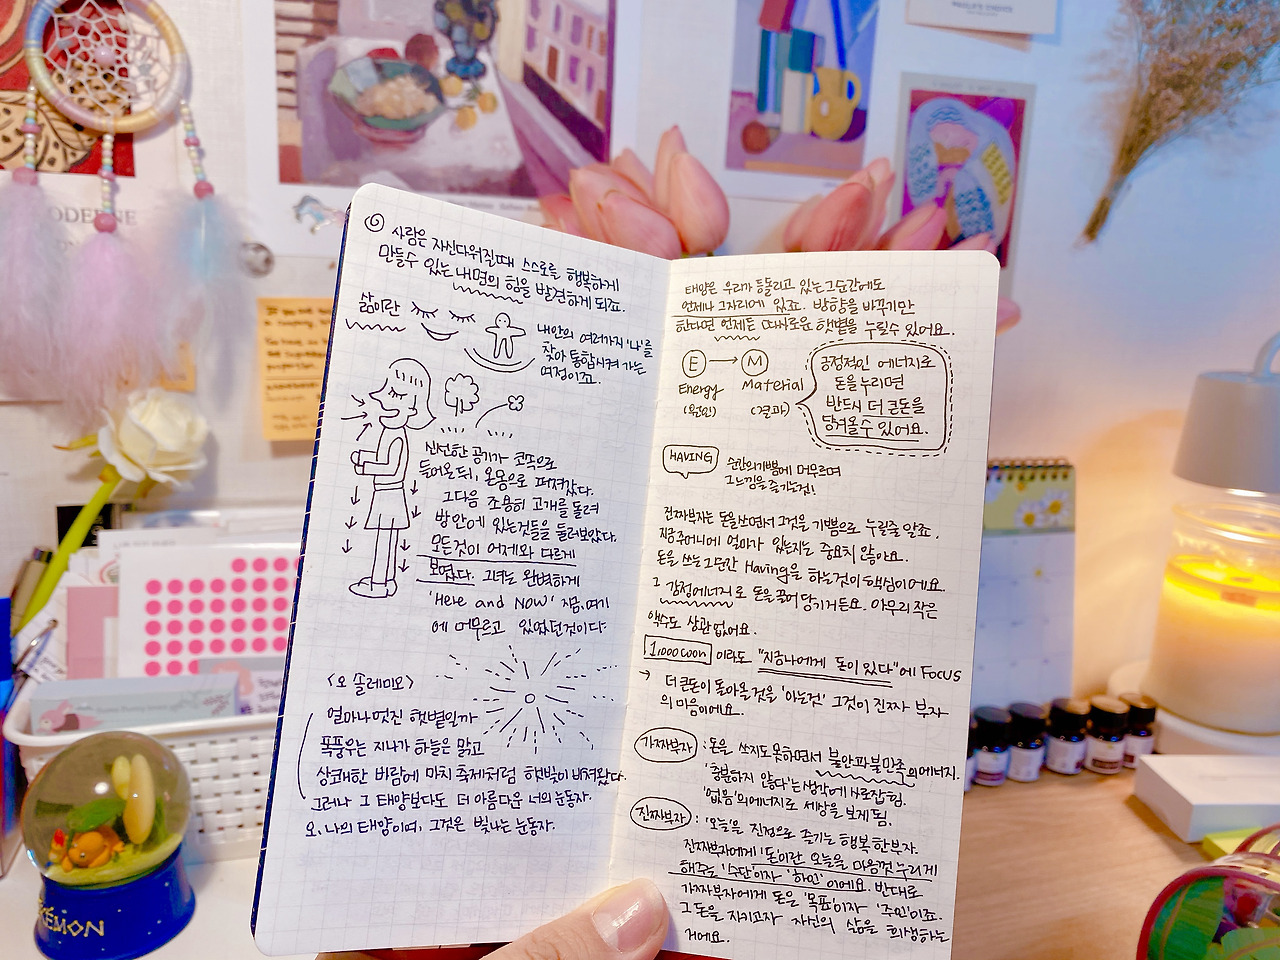 사람은 자신다워질때 스스로를 행복하게
만들수 있는 내면의 힘을 발견하게 되죠.
삶이란
내안의 여러가지 '나'를
찾아 통합시켜 가는
여정이죠.
신선한 공기가 콧쪽으로
들어온 뒤, 온몸으로 퍼져갔다.
그다음 조용히 고개를 돌려
방안에 있는것들을 둘러보았다.
모든것이 어제와 다르게
보였다. 그녀는 완벽하게
'Here and NOW' 지금, 여기
에 머무르고 있었던것이다
<오 솔레미오>
얼마나 멋진 햇볕일까
폭풍우는 지나가 하늘은 맑고
상쾌한 바람에 마치 축제처럼 햇빛이 비쳐왔다.
그러나 그 태양보다도 더 아름다운 너의 눈동자.
오, 나의 태양이여, 그것은 빛나는 눈동자.
태양은 우리가 등돌리고 있는 그순간에도
언제나 그자리에 있죠. 방향을 바꾸기만
한다면 언제든 따사로운 햇볕을 누릴수 있어요.
E → M
Energy Material
(원인) (결과)
긍정적인 에너지로
돈을 누리면
반드시 더 큰돈을
당겨올수 있어요.
HAVING
순간의 기쁨에 머무르며
그 느낌을 즐기는것!
진짜부자는 돈을쓰면서 그것을 기쁨으로 누릴줄 알죠.
지금 주머니에 얼마가 있는지는 중요치 않아요.
돈을 쓰는 그순간 Having을 하는것이 핵심이에요.
그 감정에너지로 돈을 끌어 당기거든요. 아무리 작은
액수도 상관없어요.
1,000coon 이라도 "지금 나에게 돈이 있다"에 Focus
→ 더 큰돈이 돌아올 것을 '아는것' 그것이 진짜 부자
의 마음이에요.
가짜부자 : 돈을 쓰지도 못하면서 불안과 불만족의 에너지.
'충분하지 않다'는 생각에 사로잡힘.
'없음'의 에너지로 세상을 보게 됨.
진짜부자 : '오늘'을 진정으로 즐기는 행복한 부자.
진짜부자에게 '돈'이란 오늘을 마음껏 누리게
해주는 '수단'이자 '하인'이에요. 반대로
가짜부자에게 돈은 '목표'이자 '주인'이죠.
그 돈을 지키고자 자신의 삶을 희생하는
거예요.